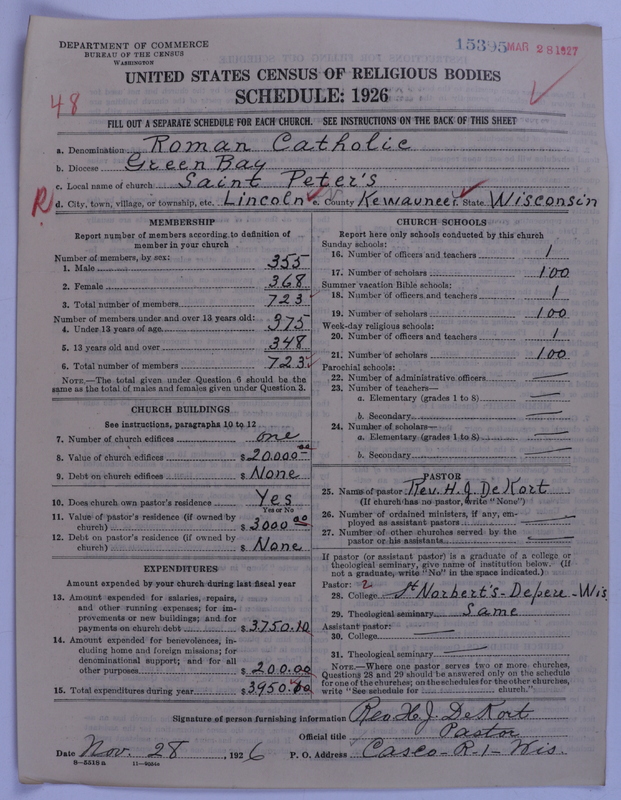 DEPARTMENT OF COMMERCE
BUREAU OF THE CENSUS
WASHINGTON
15395 MAR 28 1927
UNITED STATES CENSUS OF RELIGIOUS BODIES
SCHEDULE: 1926
48
FILL OUT A SEPARATE SCHEDULE FOR EACH CHURCH. SEE INSTRUCTIONS ON THE BACK OF THIS SHEET
a. Denomination Roman Catholic
b. Diocese Green Bay
c. Local name of church Saint Peter's
R d. City, town, village, or township, etc. Lincoln e. County Kewaunee f. State Wisconsin
MEMBERSHIP
Report number of members according to definition of
member in your church
Number of members, by sex:
1. Male 355
2. Female 368
3. Total number of members 723
Number of members under and over 13 years old:
4. Under 13 years of age 375
5. 13 years old and over 348
6. Total number of members 723
NOTE.—The total given under Question 6 should be the
same as the total of males and females given under Question 3.
CHURCH BUILDINGS
See instructions, paragraphs 10 to 12
7. Number of church edifices one
8. Value of church edifices $ 20000 00
9. Debt on church edifices $ None
10. Does church own pastor's residence Yes
Yes or No
11. Value of pastor's residence (if owned by
church) $ 3000 00
12. Debt on pastor's residence (if owned by
church) $ None
EXPENDITURES
Amount expended by your church during last fiscal year
13. Amount expended for salaries, repairs,
and other running expenses; for im-
provements or new buildings; and for
payments on church debt $ 3750.10
14. Amount expended for benevolences, in-
cluding home and foreign missions; for
denominational support; and for all
other purposes $ 200.00
15. Total expenditures during year $ 3950.10
CHURCH SCHOOLS
Report here only schools conducted by this church
Sunday schools:
16. Number of officers and teachers 1
17. Number of scholars 100
Summer vacation Bible schools:
18. Number of officers and teachers 1
19. Number of scholars 100
Week-day religious schools:
20. Number of officers and teachers 1
21. Number of scholars 100
Parochial schools:
22. Number of administrative officers —
23. Number of teachers—
a. Elementary (grades 1 to 8) —
b. Secondary —
24. Number of scholars—
a. Elementary (grades 1 to 8) —
b. Secondary —
PASTOR
25. Name of pastor Rev. H. J. De Kort
(If church has no pastor, write "None")
26. Number of ordained ministers, if any, em-
ployed as assistant pastors —
27. Number of other churches served by the
pastor or his assistants —
If pastor (or assistant pastor) is a graduate of a college or
theological seminary, give name of institution below. (If
not a graduate, write "No" in the space indicated.)
Pastor: 2
28. College St Norbert's - Depere - Wis
29. Theological seminary Same
Assistant pastor:
30. College —
31. Theological seminary —
NOTE.—Where one pastor serves two or more churches,
Questions 28 and 29 should be answered only on the schedule
for one of the churches; on the schedules for the other churches,
write "See schedule for church."
Signature of person furnishing information Rev H. J. De Kort
Official title Pastor
Date Nov. 28, 1926 P. O. Address Casco - R - 1 - Wis.
8-5518 a